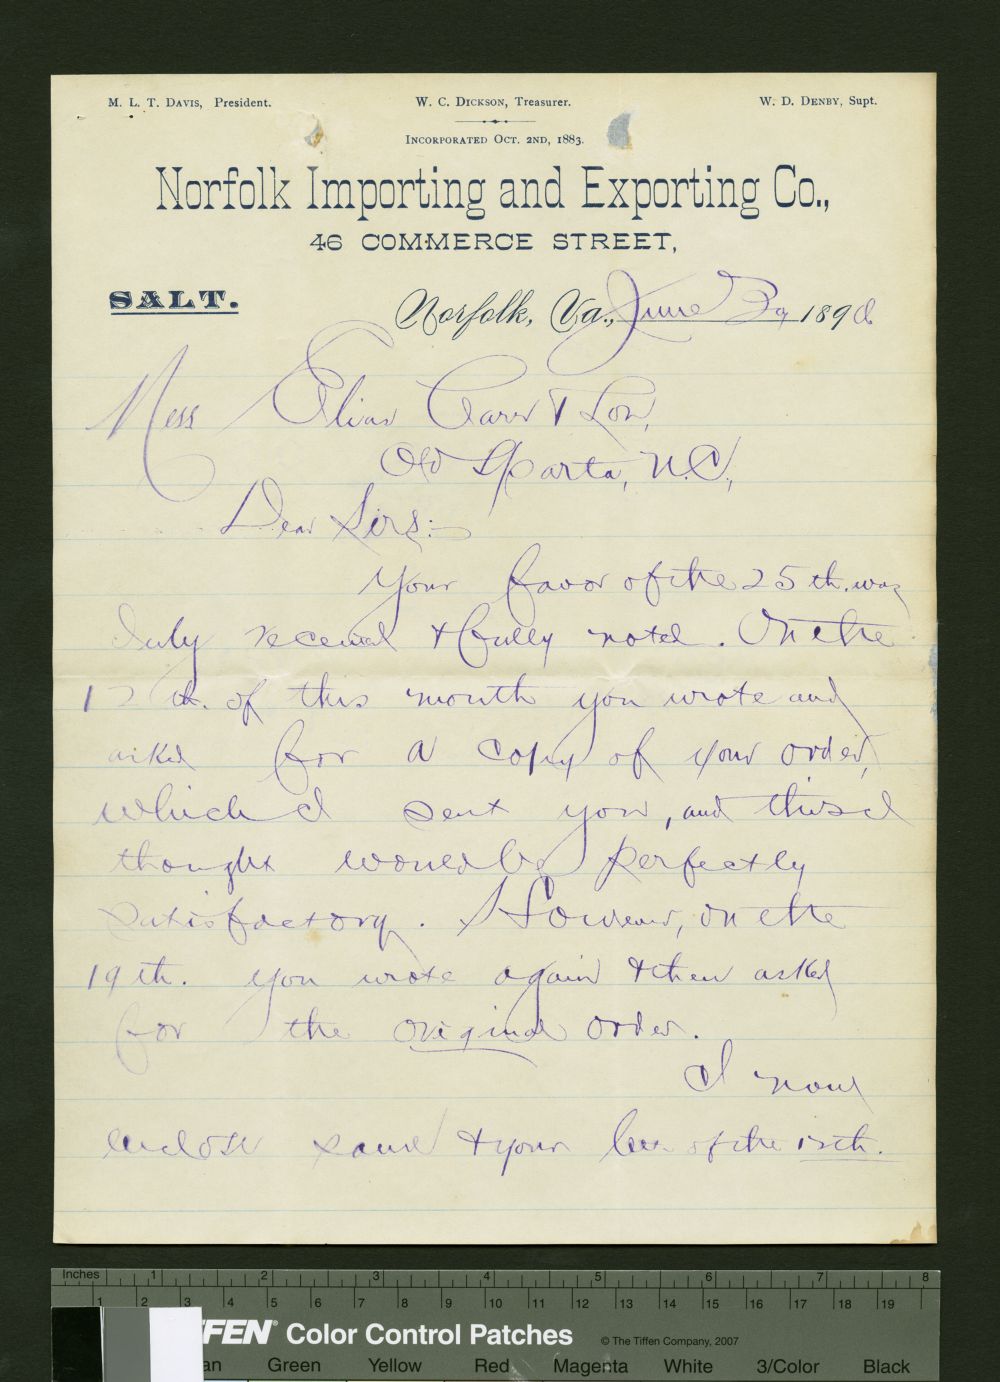 M. L. T. Davis, President. W. C. Dickson, Treasurer. W. D. Denby, Supt.
Incorporated Oct. 2nd, 1883.
Norfolk Importing and Exporting Co.,
46 COMMERCE STREET,
SALT.
Norfolk, Va., June 189
Mess Elias Carr & Son,
Old Sparta, N.C.,
Dear Sirs:-
Your favor of the 25th. was
duly received & fully noted. On the
th. of this month you wrote and
asked for a copy of your order,
which I sent you, and this I
thought would be perfectly
satisfactory. However, on the
19th. you wrote again & then asked
for the original order.
I now
enclose same & your of the th.
Inches 1 2 3 4 5 6 7 8
1 2 3 4 5 6 7 8 9 10 11 12 13 14 15 16 17 18 19
FFEN® Color Control Patches © The Tiffen Company, 2007
an Green Yellow Red Magenta White 3/Color Black